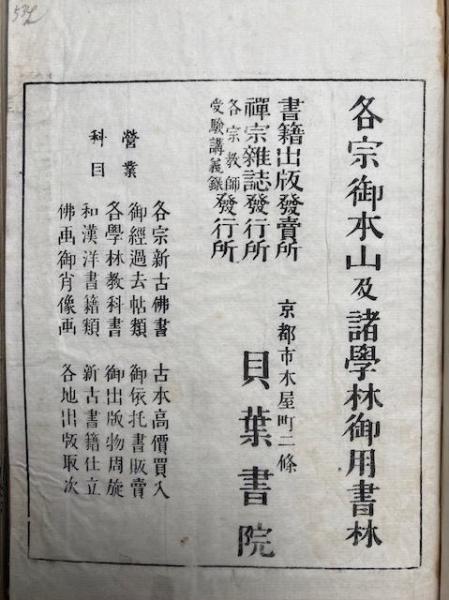 各宗御本山及諸學林御用書林
書籍出版發賣所
禪宗雜誌發行所
各宗教師
受驗講義錄
發行所
京都市木屋町二條
貝葉書院
營業
科目
各宗新古佛書
御經過去帖類
各學林教科書
和漢洋書籍類
佛画御肖像画
古本高價買入
御依托書販賣
御出版物周旋
新古書籍仕立
各地出版取次